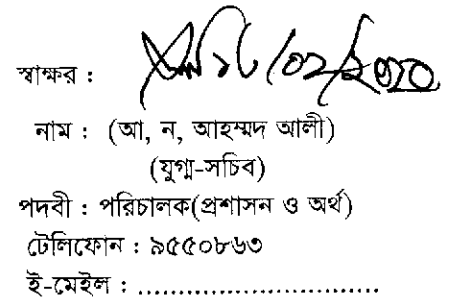 স্বাক্ষর :
নাম : (আ, ন, আহম্মদ আলী)
(যুগ্ম-সচিব)
পদবী : পরিচালক(প্রশাসন ও অর্থ)
টেলিফোন : ৯৫৫০৮৬৩
ই-মেইল : ..............................